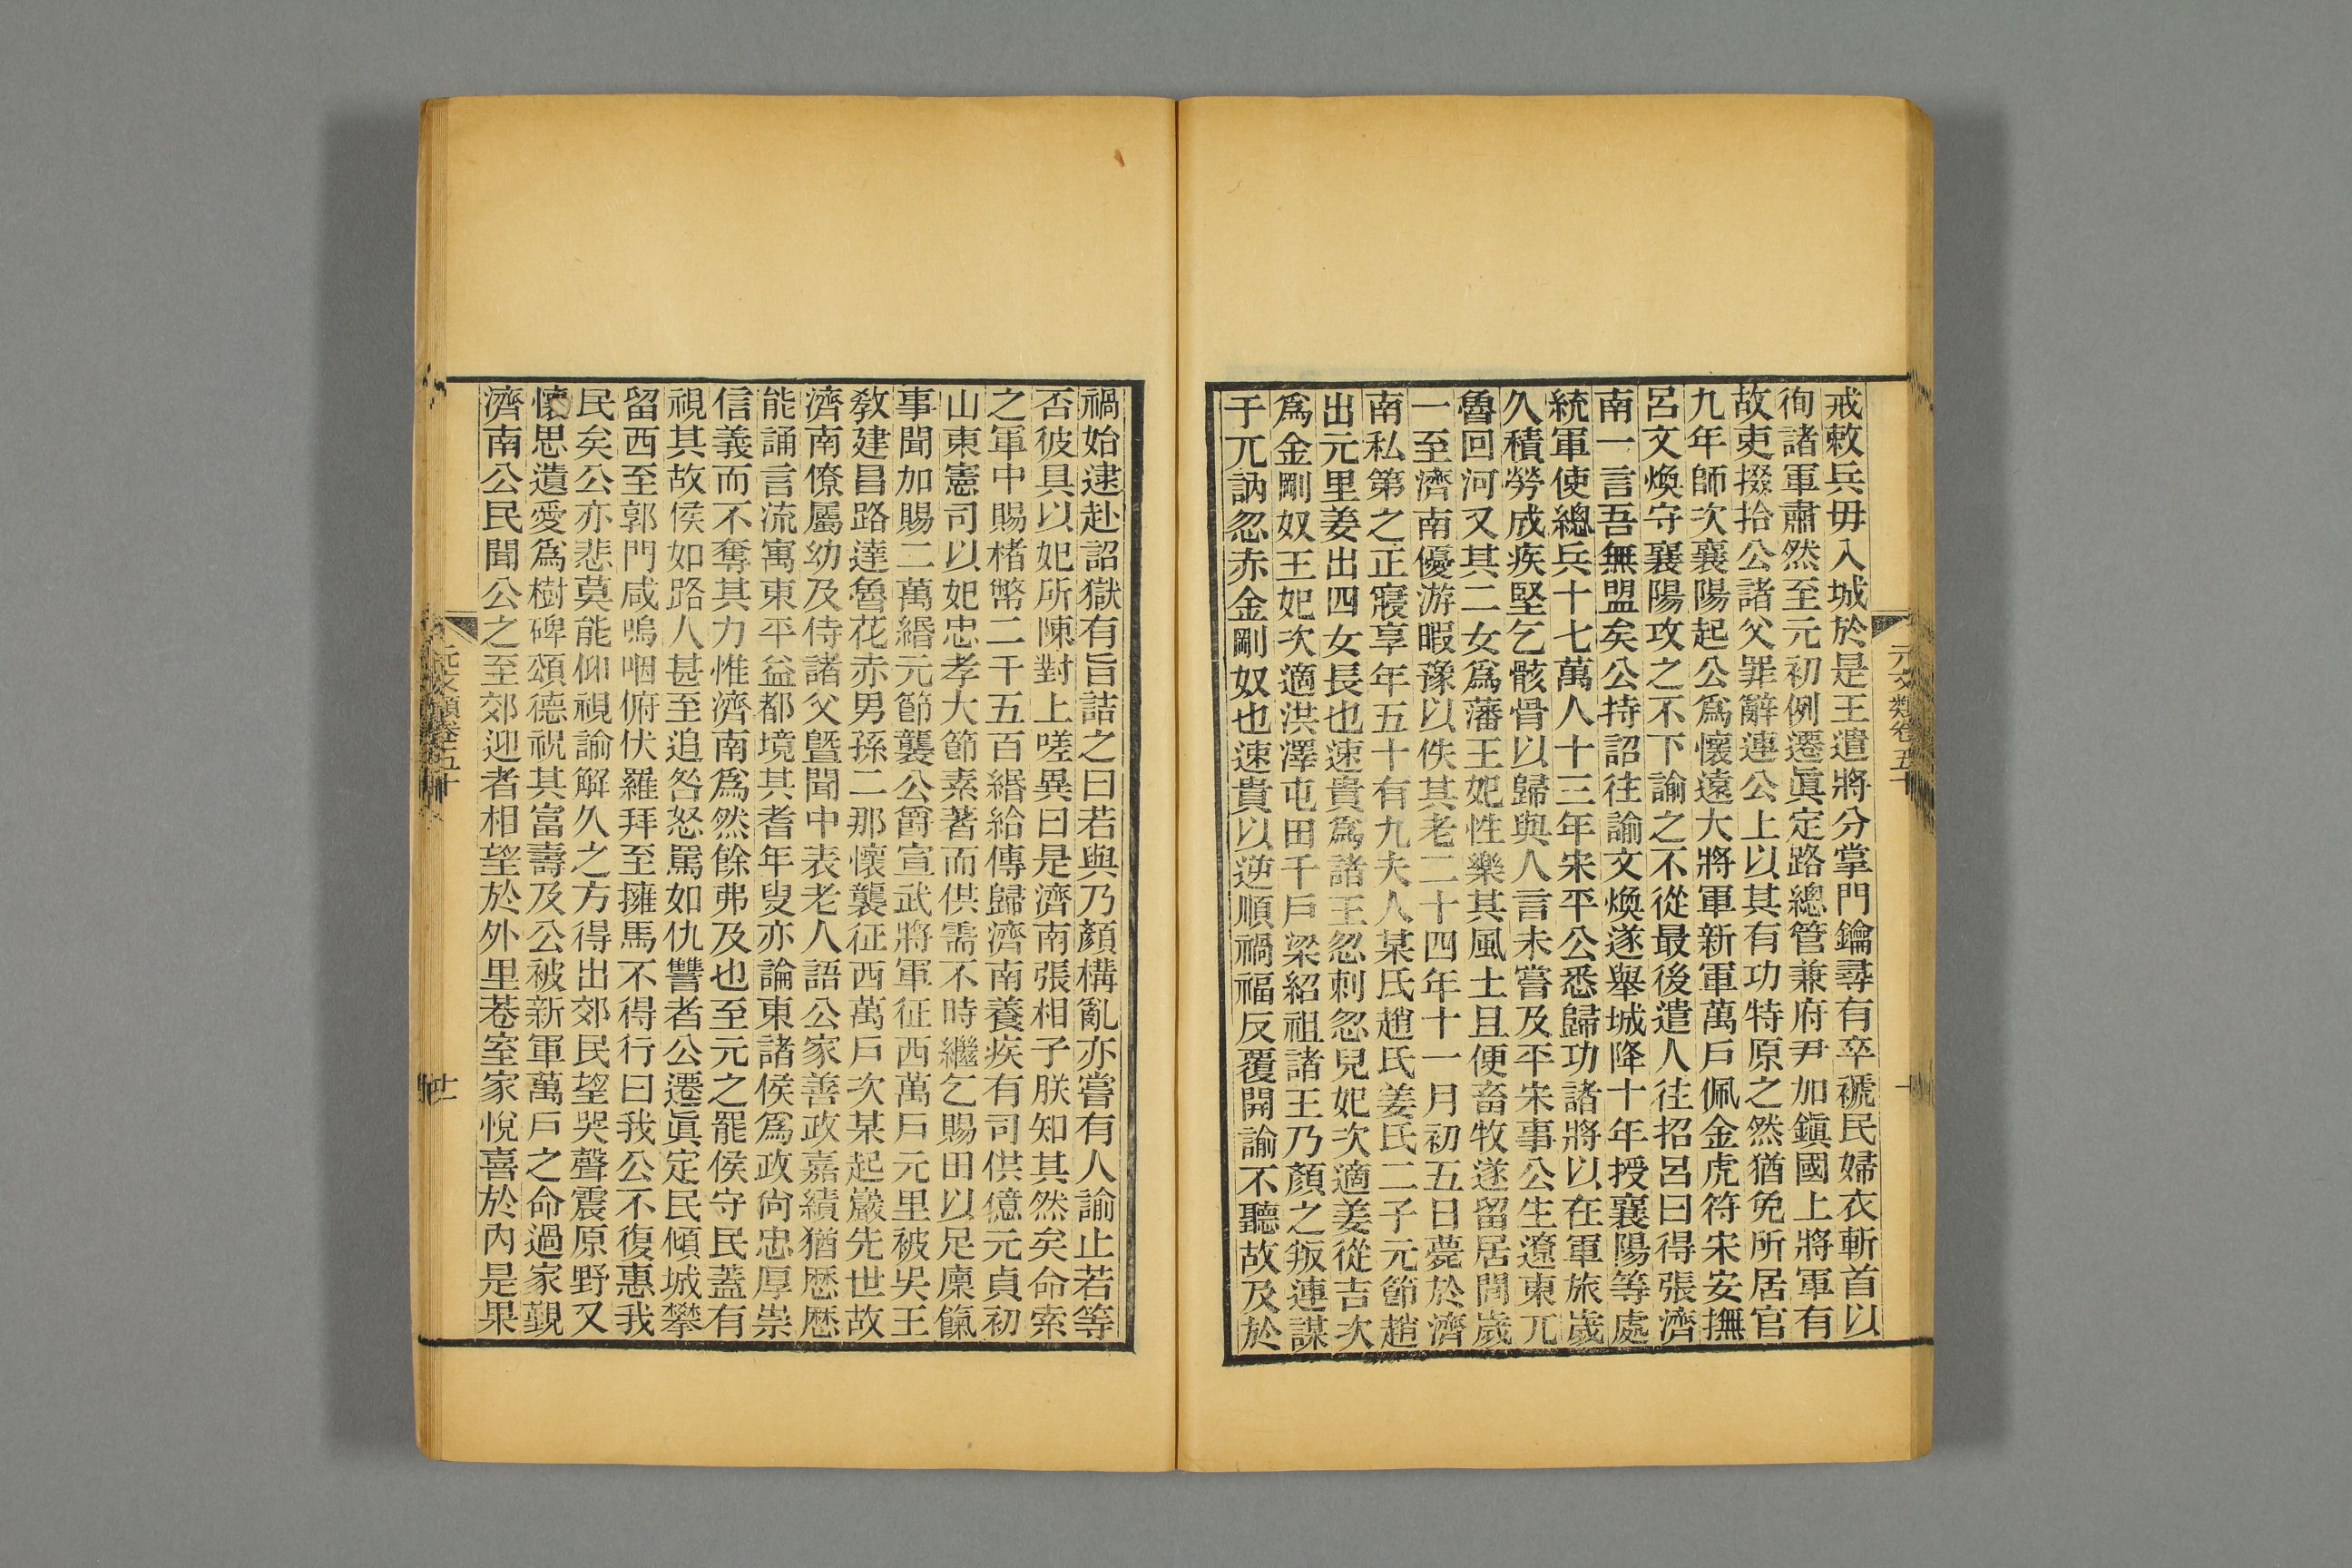 元文類卷五十
戒敕兵毋入城於是王遣將分掌門鑰尋有卒褫民婦衣斬首以
徇諸軍肅然至元初例遷眞定路總管兼府尹加鎭國上將軍有
故吏掇拾公諸父罪辭連公上以其有功特原之然猶免所居官
九年師次襄陽起公爲懷遠大將軍新軍萬戸佩金虎符宋安撫
呂文煥守襄陽攻之不下諭之不從最後遣人往招呂曰得張濟
南一言吾無盟矣公持詔往諭文煥遂舉城降十年授襄陽等處
統軍使總兵十七萬人十三年宋平公悉歸功諸將以在軍旅歲
久積勞成疾堅乞骸骨以歸與人言未嘗及平宋事公生遼東兀
魯回河又其二女爲藩王妃性樂其風土且便畜牧遂留居間歲
一至濟南優游暇豫以佚其老二十四年十一月初五日薨於濟
南私第之正寢享年五十有九夫人某氏趙氏姜氏二子元節趙
出元里姜出四女長也速貴爲諸王忽刺忽兒妃次適姜從吉次
爲金剛奴王妃次適洪澤屯田千戸梁紹祖諸王乃顏之叛連謀
于兀訥忽赤金剛奴也速貴以逆順禍福反覆開諭不聽故及於
禍始逮赴詔獄有旨詰之曰若與乃顏構亂亦嘗有人諭止若等
否彼具以妃所陳對上嗟異曰是濟南張相子朕知其然矣命索
之軍中賜楮幣二千五百緡給傳歸濟南養疾有司供億元貞初
山東憲司以妃忠孝大節素著而供需不時繼乞賜田以足廩餼
事聞加賜二萬緡元節襲公爵宣武將軍征西萬戸元里被吳王
敎建昌路達魯花赤男孫二那懷襲征西萬戸次某起巖先世故
濟南僚屬幼及侍諸父曁聞中表老人語公家善政嘉績猶歷歷
能誦言流寓東平益都境其耆年叟亦論東諸侯爲政尙忠厚崇
信義而不奪其力惟濟南爲然餘弗及也至元之罷侯守民蓋有
視其故侯如路人甚至追咎怒罵如仇讐者公遷眞定民傾城攀
留西至郭門咸嗚咽俯伏羅拜至擁馬不得行曰我公不復惠我
民矣公亦悲莫能仰視諭解久之方得出郊民望哭聲震原野又
懷思遺愛爲樹碑頌德祝其富壽及公被新軍萬戸之命過家覲
濟南公民聞公之至郊迎者相望於外里巷室家悅喜於內是果
元文類卷五十